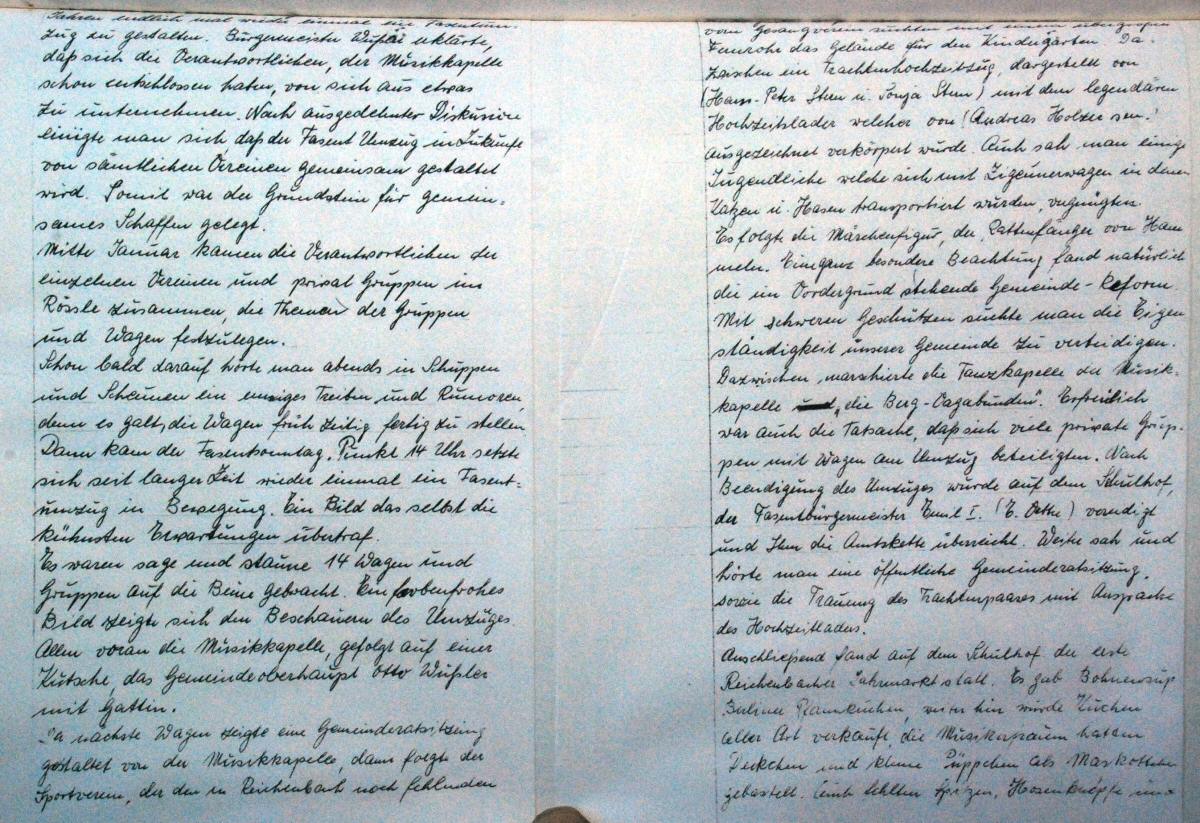 Jahren endlich mal wieder einmal ein Fasentum-
zug zu gestalten. Bürgermeister Wußler erklärte,
daß sich die Verantwortlichen, der Musikkapelle
schon entschlossen haben, von sich aus etwas
zu unternehmen. Nach ausgedehnter Diskussion
einigte man sich daß der Fasent Umzug in Zukunft
von sämtlichen Vereinen gemeinsam gestaltet
wird. Somit war der Grundstein für gemein-
sames Schaffen gelegt.
Mitte Januar kamen die Verantwortlichen der
einzelnen Vereinen und privat Gruppen im
Rössle zusammen, die Themen der Gruppen
und Wagen festzulegen.
Schon bald darauf hörte man abends in Schuppen
und Scheunen ein emsiges Treiben und Rumoren,
denn es galt, die Wagen früh zeitig fertig zu stellen.
Dann kam der Fasentsonntag. Punkt 14 Uhr setzte
sich seit langer Zeit wieder einmal ein Fasent-
umzug in Bewegung. Ein Bild das selbst die
kühnsten Erwartungen übertraf.
Es waren sage und staune 14 Wagen und
Gruppen auf die Beine gebracht. Ein farbenfrohes
Bild zeigte sich den Beschauern des Umzuges
Allen voran die Musikkapelle, gefolgt auf einer
Kutsche, das Gemeindeoberhaupt Otto Wußler
mit Gattin.
Der nächste Wagen zeigte eine Gemeinderatssitzung
gestaltet von der Musikkapelle, dann folgte der
Sportverein, der den in Reichenbach noch fehlenden
vom Gesangverein suchten mit einem übergroßen
Fernrohr das Gelände für den Kindergarten. Da-
zwischen ein Trachtenhochzeitzug, dargestellt von
(Hans-Peter Stern u. Sonja Stern) mit dem legendären
Hochzeitslader welcher von (Andreas Holzer sen.)
ausgezeichnet verkörpert wurde. Auch sah man einige
Jugendliche welche sich mit Zigeunerwagen in denen
Katzen u. Hasen transportiert wurden, vergnügten.
Es folgte die Märchenfigur, der Rattenfänger von Ham
meln. Eine ganz besondere Beachtung fand natürlich
die im Vordergrund stehende Gemeinde-Reform.
Mit schweren Geschützen suchte man die Eigen
ständigkeit unserer Gemeinde zu verteidigen.
Dazwischen marschierte die Tanzkapelle der Musik-
kapelle „die Berg-Vagabunden“. Erfreulich
war auch die Tatsache, daß sich viele private Grup-
pen mit Wagen am Umzug beteiligten. Nach
Beendigung des Umzuges wurde auf dem Schulhof,
der Fasentbürgermeister Emil I. (E. ) vereidigt
und Ihm die Amtskette überreicht. Weiter sah und
hörte man eine öffentliche Gemeinderatsitzung,
sowie die Trauung des Trachtenpaares mit Ansprache
des Hochzeitladers.
Anschließend fand auf dem Schulhof der erste
Reichenbacher Jahrmarkt statt. Es gab Bohnensup
Berliner Pfannkuchen, weiter hin wurde Kuchen
aller Art verkauft, die Musikerfrauen hatten
Deckchen und kleine Püppchen als Maskottchen
gebastelt. Auch fehlten Spitzen, Hosenknöpfe und